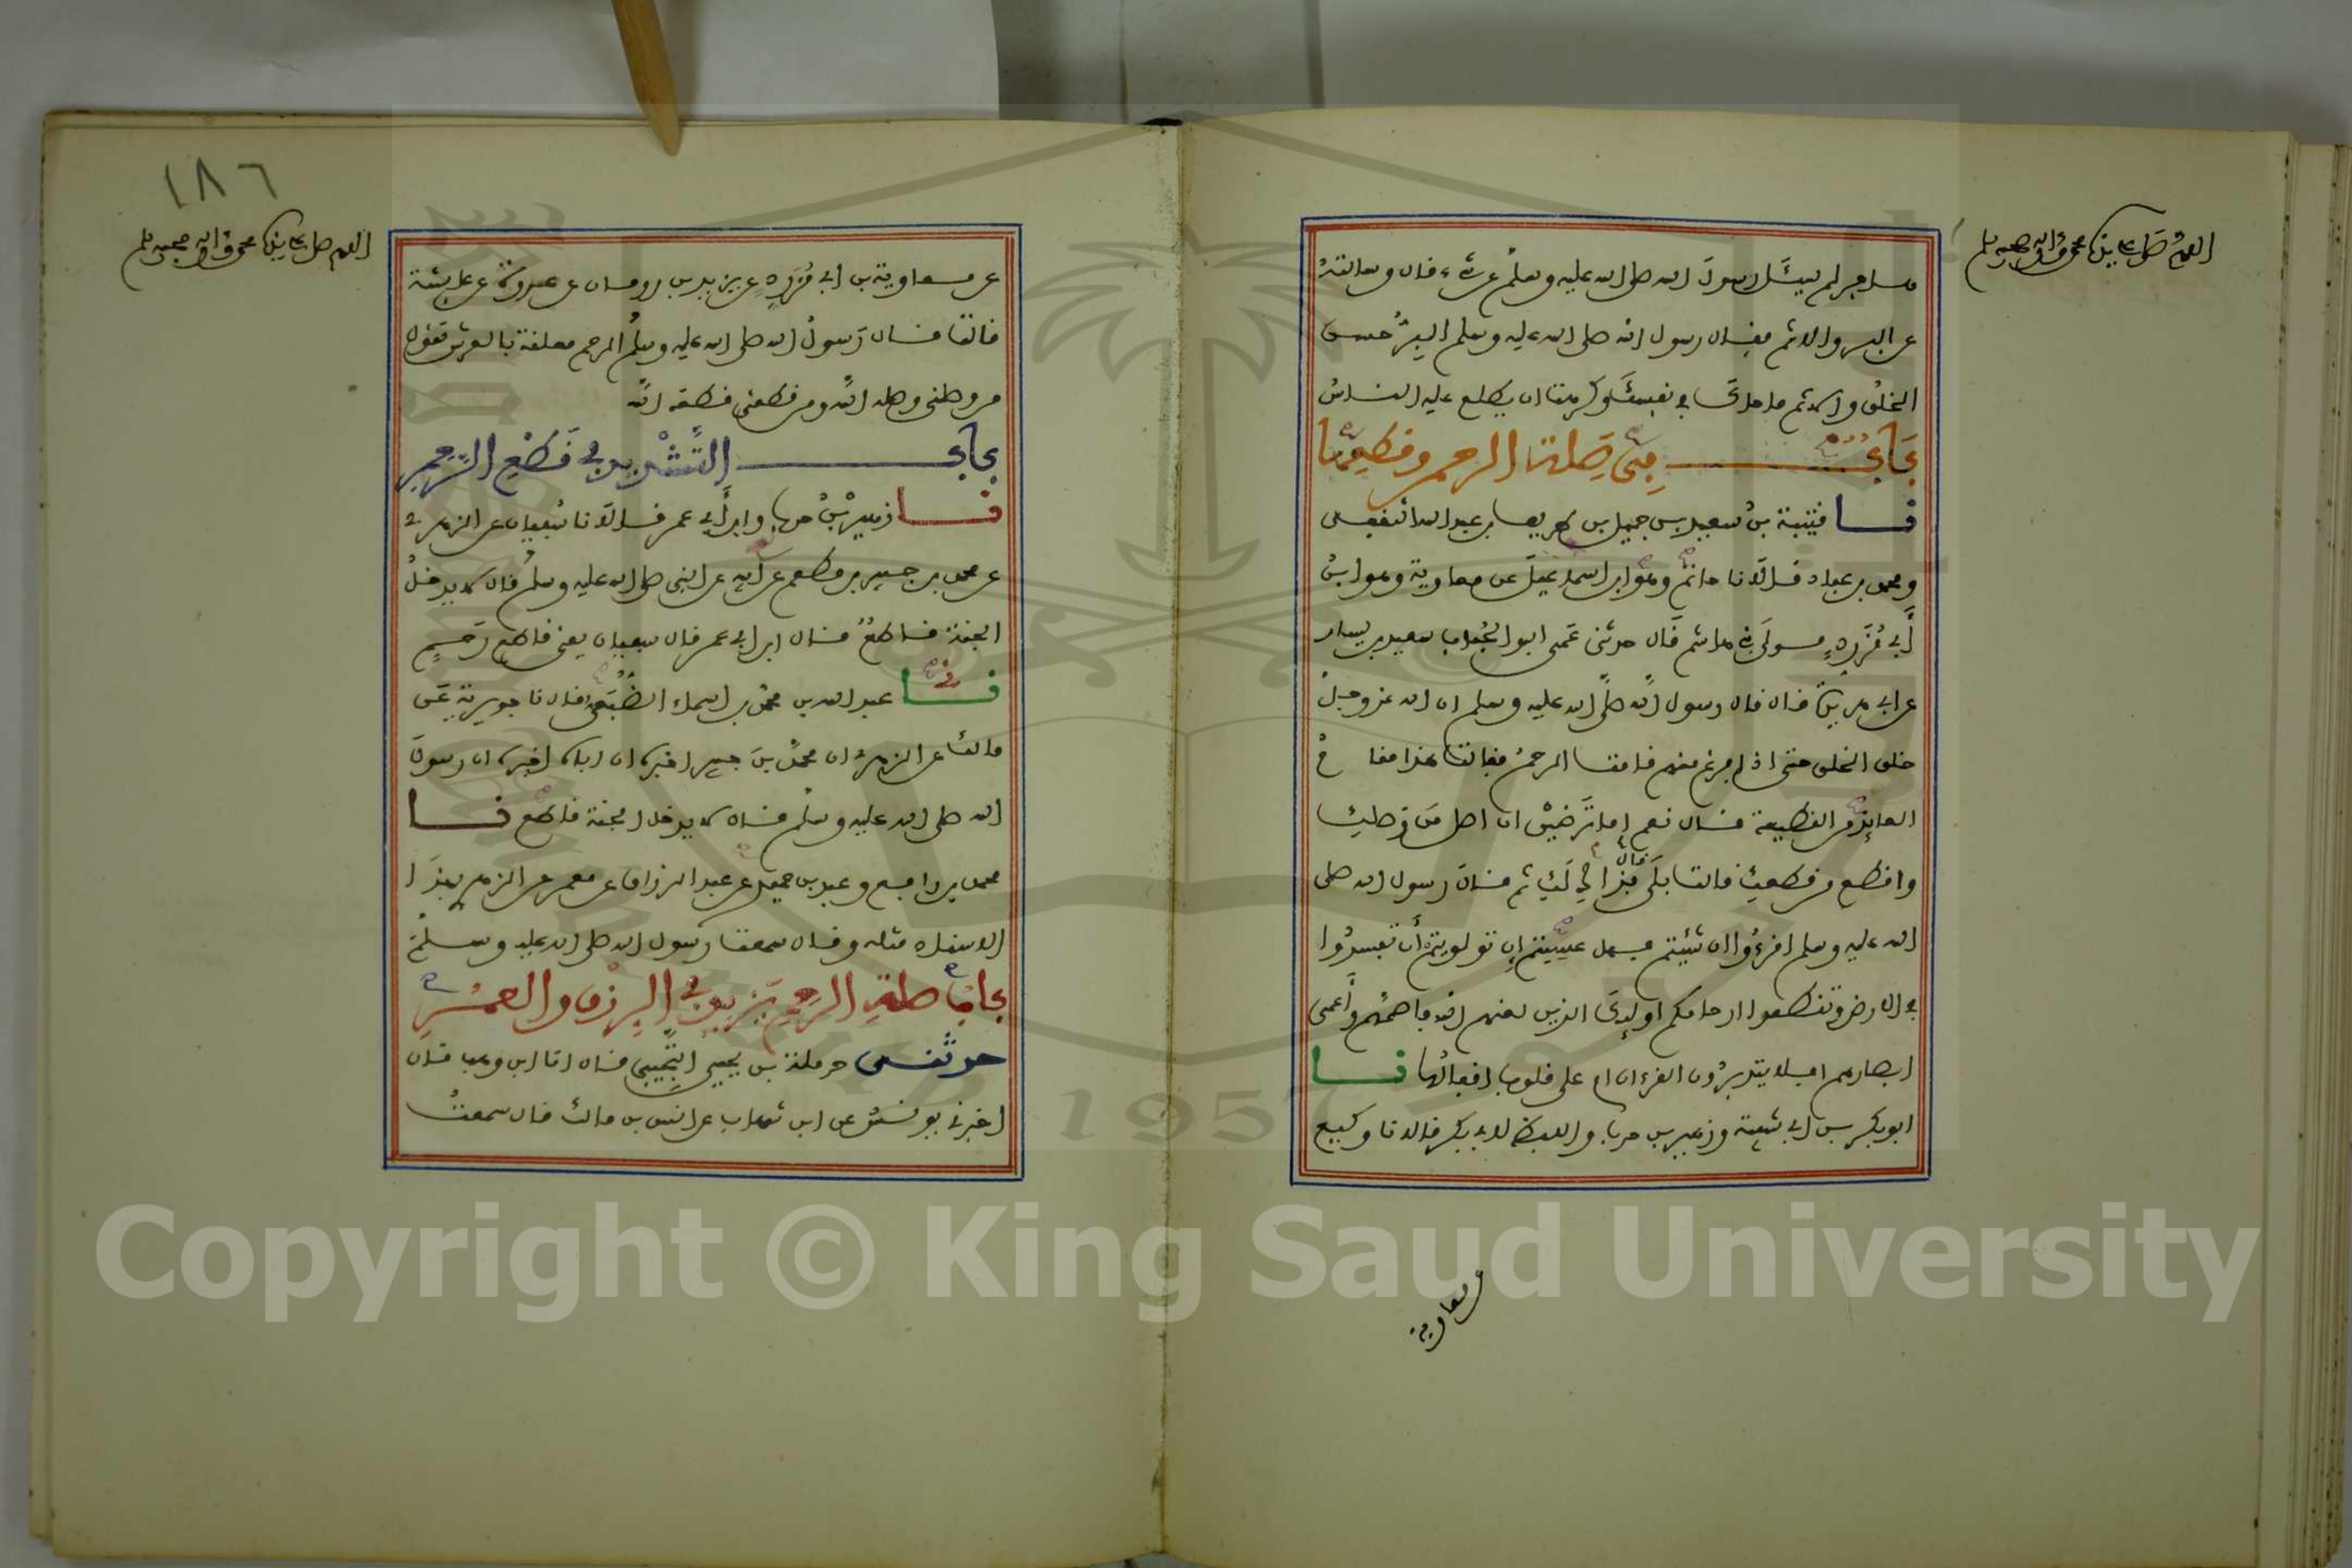 اللهم صل على سيدنا محمد وءاله وصحبه وسلم
هاجر لم يسئل رسول الله صلى الله عليه وسلم عن شيء قال وسالته
عن البر والاثم فقال رسول الله صلى الله عليه وسلم البر حسن
الخلق والاثم ما حاك في نفسك وكرهت ان يطلع عليه الناس
باب في صلة الرحم وقطعها
نا قتيبة بن سعيد بن جميل بن طريف بن عبد الله الثقفي
ومحمد بن عباد قالا نا حاتم وهو ابن اسماعيل عن معاوية وهو ابن
أبي مُزَرِّدٍ مولى بني هاشم قال حدثني عمي ابو الحُباب سعيد بن يسار
عن ابي هريرة قال قال رسول الله صلى الله عليه وسلم ان الله عز وجل
خلق الخلق حتى اذا فرغ منهم قامت الرحم فقالت هذا مقام
العائذ من القطيعة قال نعم اما ترضين ان اصل من وصلك
واقطع من قطعك قالت بلى قال فذاك لك ثم قال رسول الله صلى
الله عليه وسلم اقرءوا ان شئتم فهل عسيتم إن توليتم أن تفسدوا
في الارض وتقطعوا ارحامكم اولئك الذين لعنهم الله فاصمهم وأعمى
ابصارهم افلا يتدبرون القرءان ام على قلوب اقفالها نا
ابو بكر بن ابي شيبة وزهير بن حرب واللفظ لابي بكر قالا نا وكيع
عن معاوية
١٨٦
اللهم صل على سيدنا محمد وءاله وصحبه وسلم
عن معاوية بن أبي مُزَرِّدٍ عن يزيد بن رومان عن عروة عن عايشة
قالت قال رسول الله صلى الله عليه وسلم الرحم معلقة بالعرش تقول
من وصلني وصله الله ومن قطعني قطعه الله
باب التشديد في قطع الرحم
نا زهير بن حرب وابن أبي عمر قالا نا سفيان عن الزهري
عن محمد بن جبير بن مطعم عن أبيه عن النبي صلى الله عليه وسلم قال لا يدخل
الجنة قاطع قال ابن ابي عمر قال سفيان يعني قاطع رحم
نا عبد الله بن محمد بن اسماء الضُّبَعي قال نا جويرية عن
مالك عن الزهري ان محمد بن جبير اخبره ان اباه اخبره ان رسول
الله صلى الله عليه وسلم قال لا يدخل الجنة قاطع نا
محمد بن رافع وعبد بن حميد عن عبد الرزاق عن معمر عن الزهري بهذا
الاسناد مثله وقال سمعت رسول الله صلى الله عليه وسلم
باب صلة الرحم تزيد في الرزق والعمر
حدثني حرملة بن يحيى التجيبي قال انا ابن وهب قال
اخبرني يونس عن ابن شهاب عن انس بن مالك قال سمعت
Copyright © King Saud University
1957